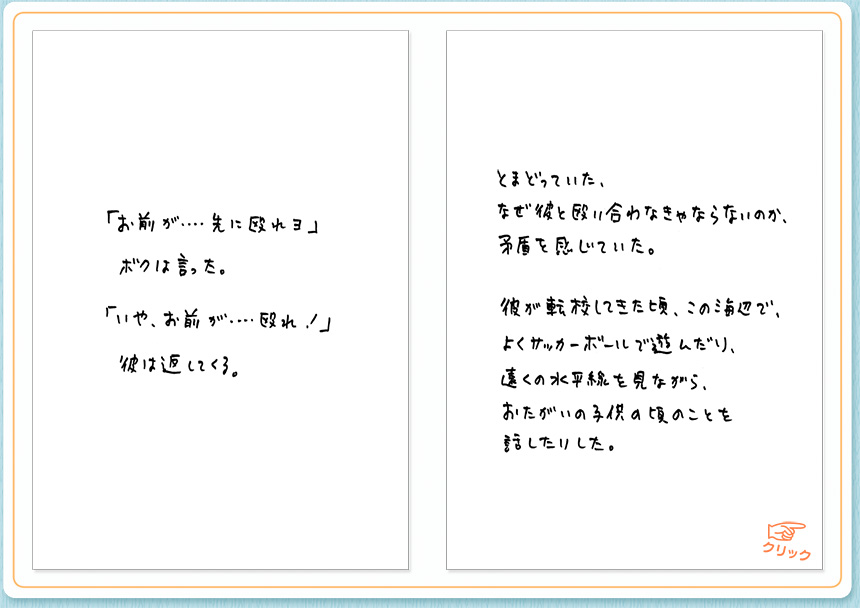 「お前が‥‥先に殴れヨ」
ボクは言った。
「いや、お前が‥‥殴れ!」
彼は返してくる。
とまどっていた、
なぜ彼と殴り合わなきゃならないのか、
矛盾を感じていた。
彼が転校してきた頃、この海辺で、
よくサッカーボールで遊んだり、
遠くの水平線を見ながら、
おたがいの子供の頃のことを
話したりした。
クリック